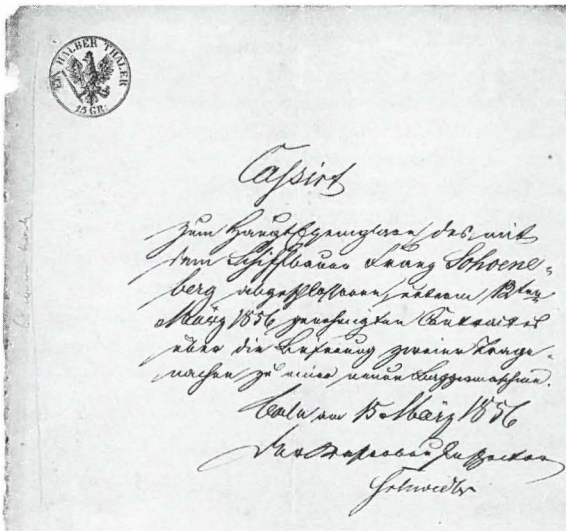 EIN HALBER THALER
15 GR.
Cassirt
zum Hauptexemplare des, mit
dem Schiffbauer Franz Schoene-
berg abgeschlossenen, unterm 12ten
März 1856 genehmigten Contractes
über die Lieferung zweier Trage-
nachen zu einer neuen Baggermaschine.
Cöln am 15. März 1856
Der Wasserbau Inspector